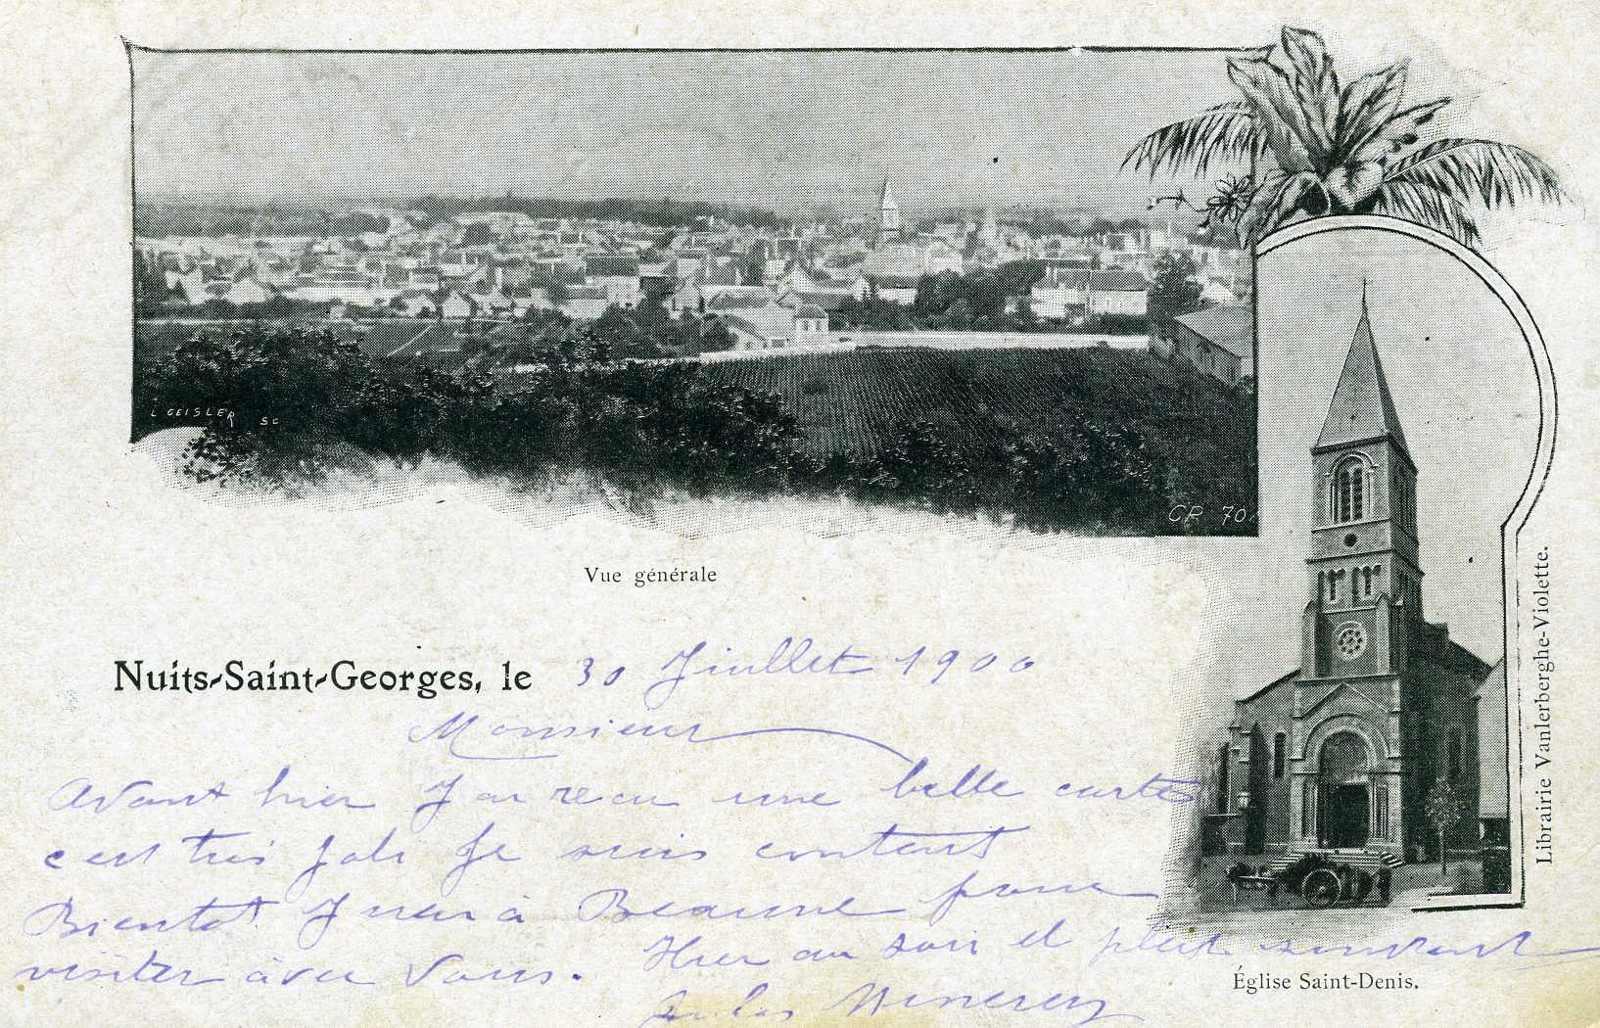 L GEISLER SC
CP 70
Vue générale
Nuits-Saint-Georges, le 30 Juillet 1900
Monsieur
Avant hier J'ai recu une belle carte
c'est très joli Je suis content
Bientot J'irai à Beaune pour
visiter avec Vous. Hier au soir il pleut souvent
Jules
Église Saint-Denis.
Librairie Vanlerberghe-Violette.